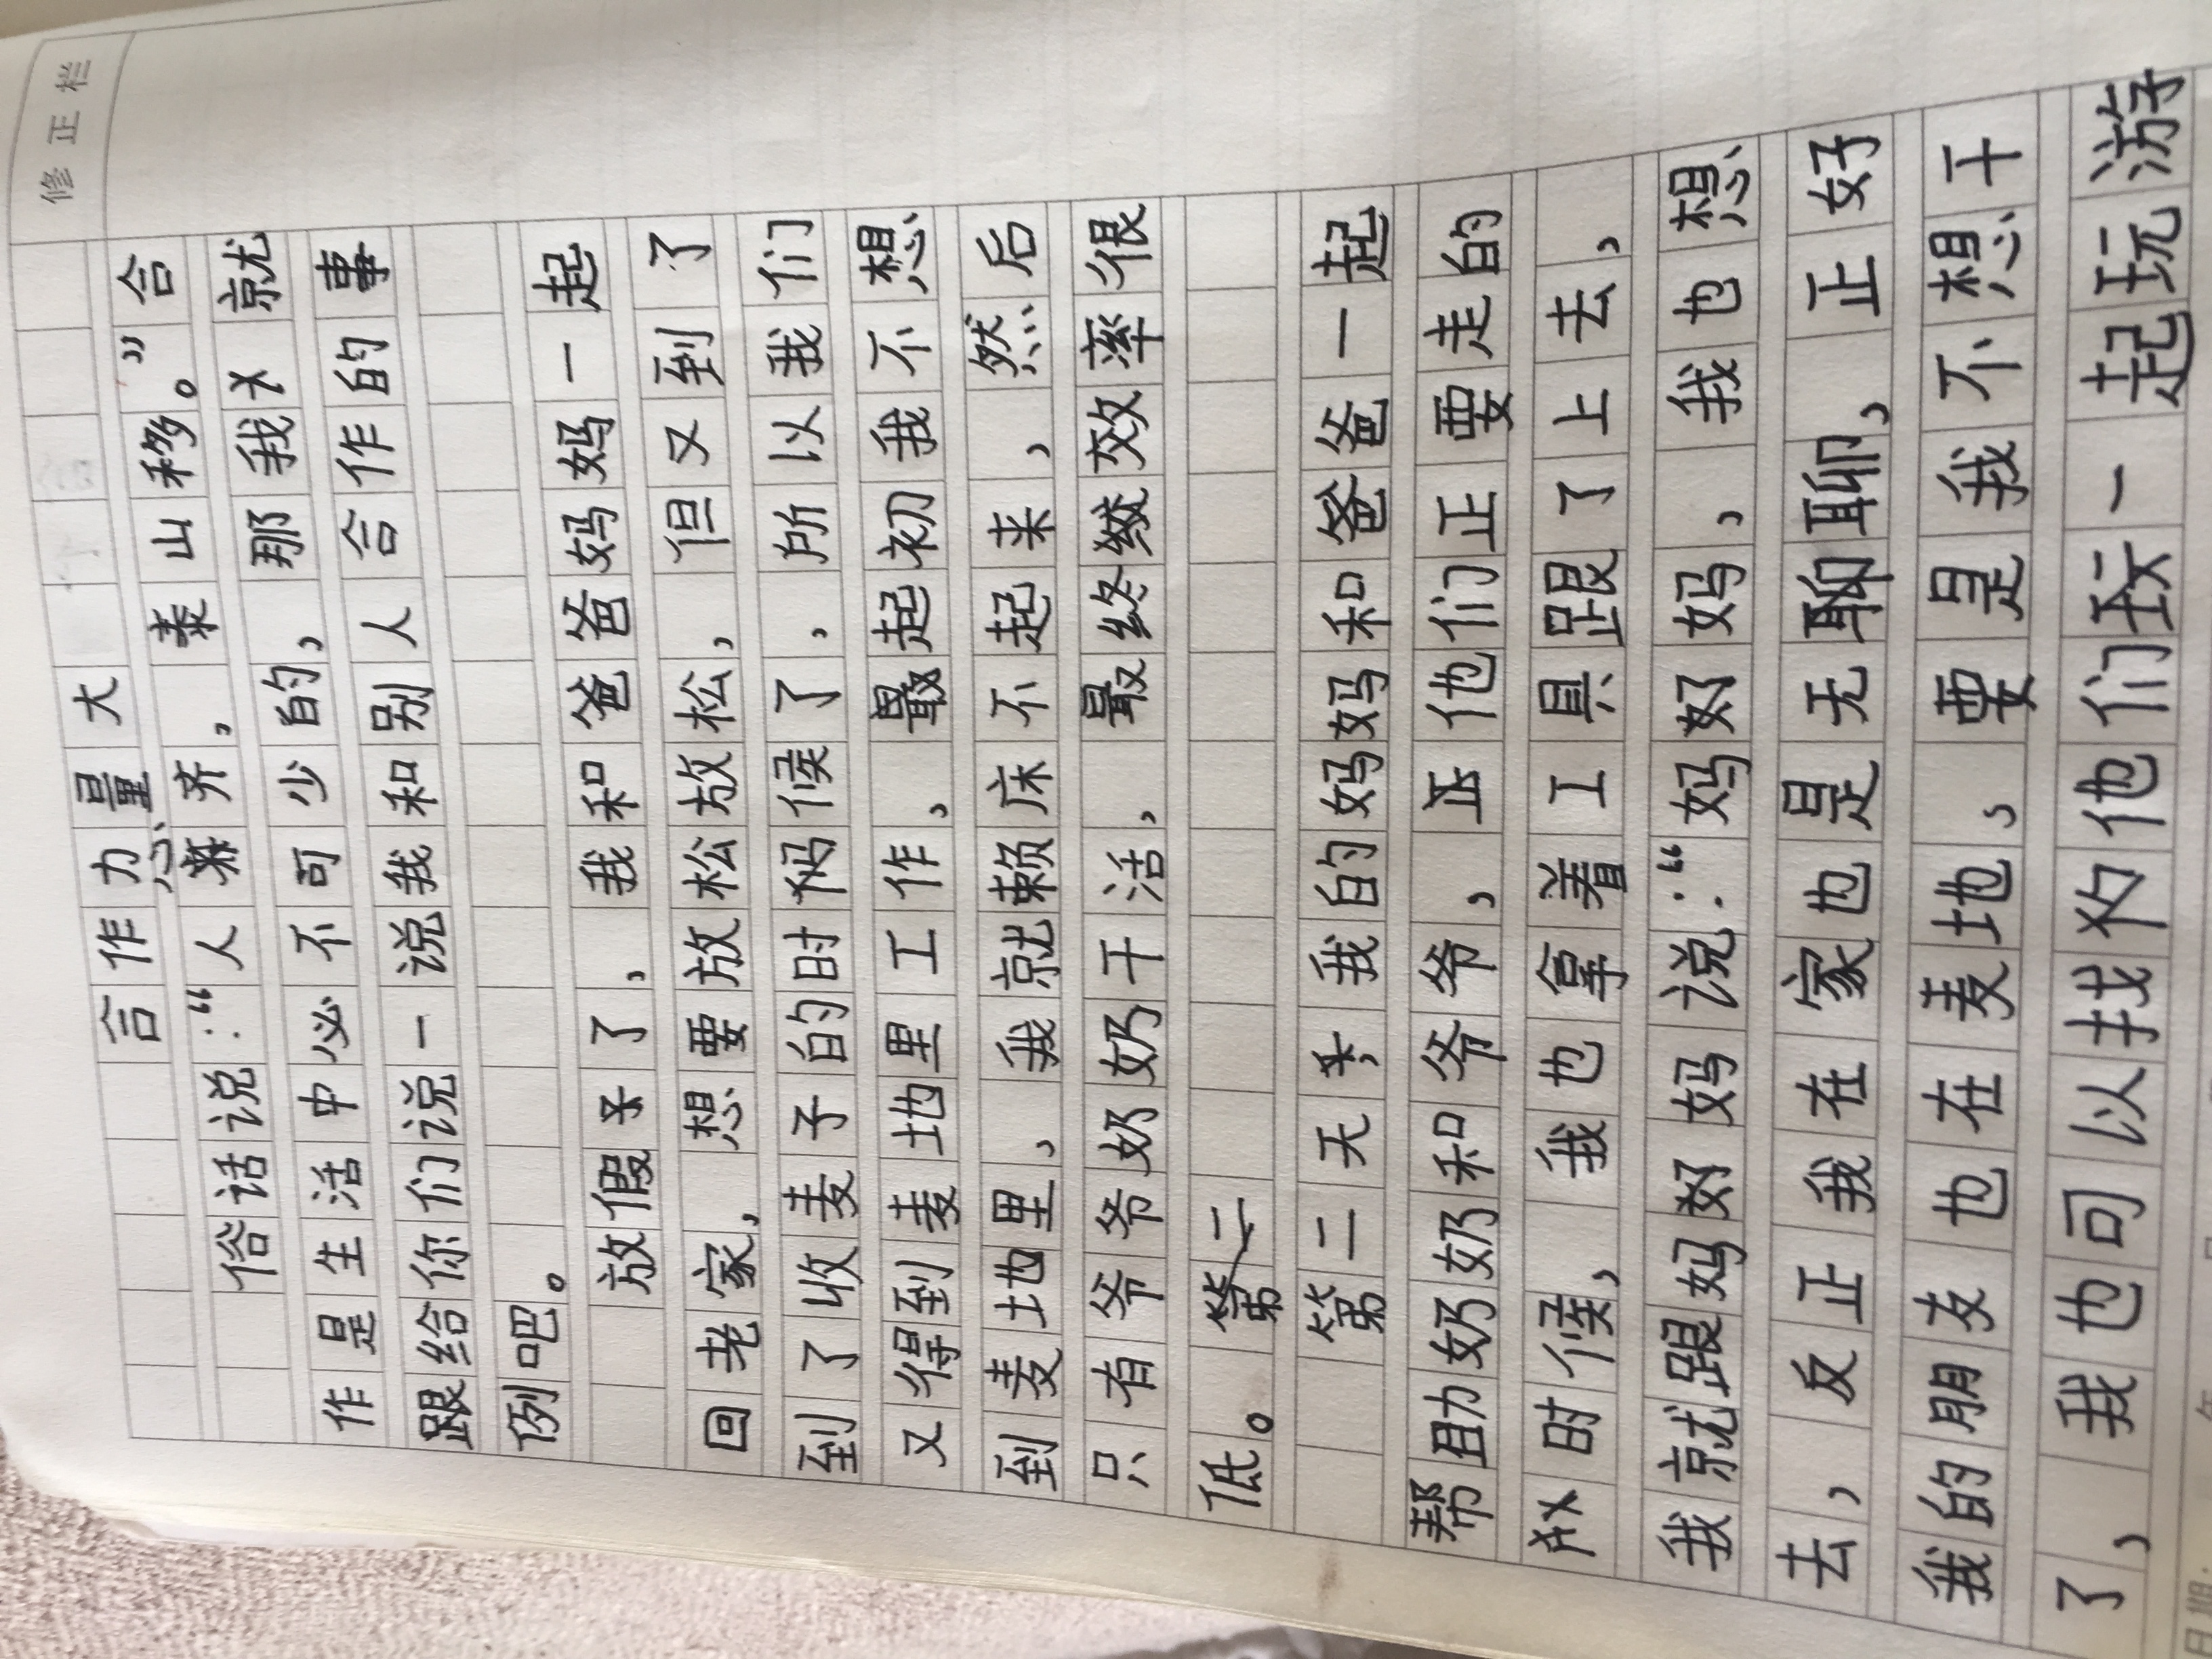 修正栏
合作力量大
俗话说：“人心齐，泰山移。”合
作是生活中必不可少的，那我就
跟给你们说一说我和别人合作的事
例吧。
放假了，我和爸爸妈妈一起
回老家，想要放松放松，但又到了
到了收麦子的时候了，所以我们
又得到麦地里工作，最起初我不想
到麦地里，我就赖床不起来，然后
只有爷爷奶奶干活，最终效率很
低。第二
第二天，我的妈妈和爸爸一起
帮助奶奶和爷爷，他们正要走的
时候，我也拿着工具跟了上去，
我就跟妈妈说：“妈妈，我也想
去，反正我在家也是无聊，正好
我的朋友也在麦地，要是我不想干
了，我也可以找他们一起玩游
日期：